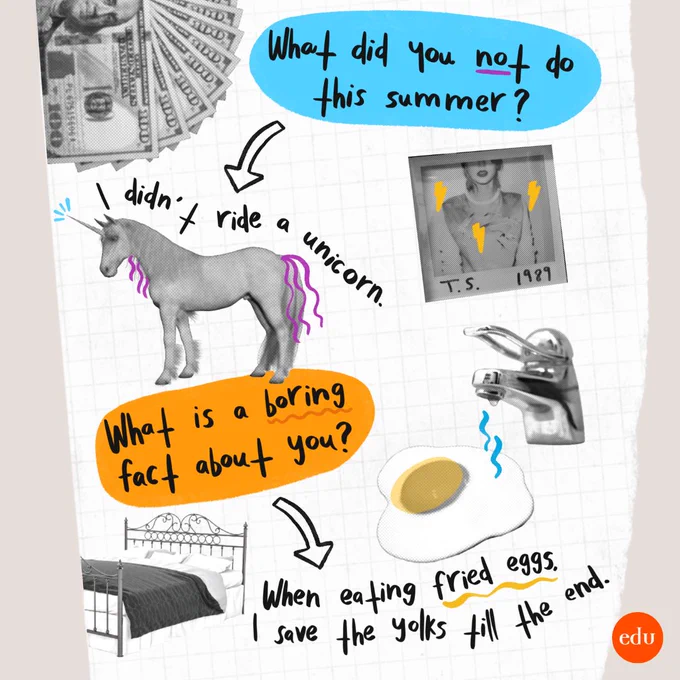 What did you not do
this summer?
I didn't ride a unicorn.
T.S. 1989
What is a boring
fact about you?
When eating fried eggs,
I save the yolks till the end.
edu
100